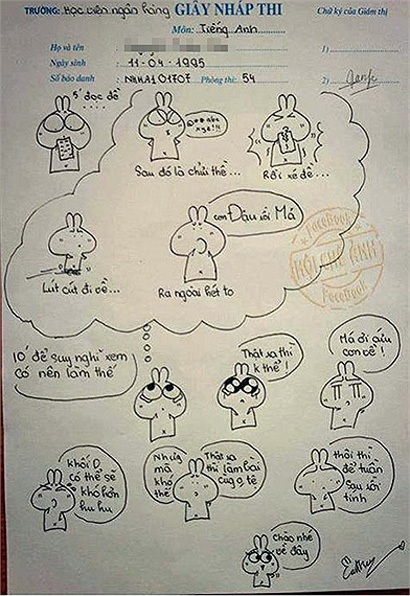 TRƯỜNG: Học viện ngân hàng GIẤY NHÁP THI Chữ ký của Giám thị
Môn: Tiếng Anh
Họ và tên 1)
Ngày sinh 11-04-1995
Số báo danh NHHA101707 Phòng thi: 54 2)
5' đọc đề
....
Sau đó là chửi thề...
Rồi xé đề...
Lút cút đi về...
con Đậu rồi Má
Ra ngoài hét to
FACEBOOK
HỘI CHẾ ẢNH
FACEBOOK
10' để suy nghĩ xem
có nên làm thế
Thật ra thì
k thể!
Má ơi cứu
con về!
khối D
có thể sẽ
khó hơn
hu hu
Nhưng
mà
khó
thế
Thật ra
thì làm bài
cũg o tệ
thôi thì
để tuần
sau rồi
tính
Chào nhé
về đây